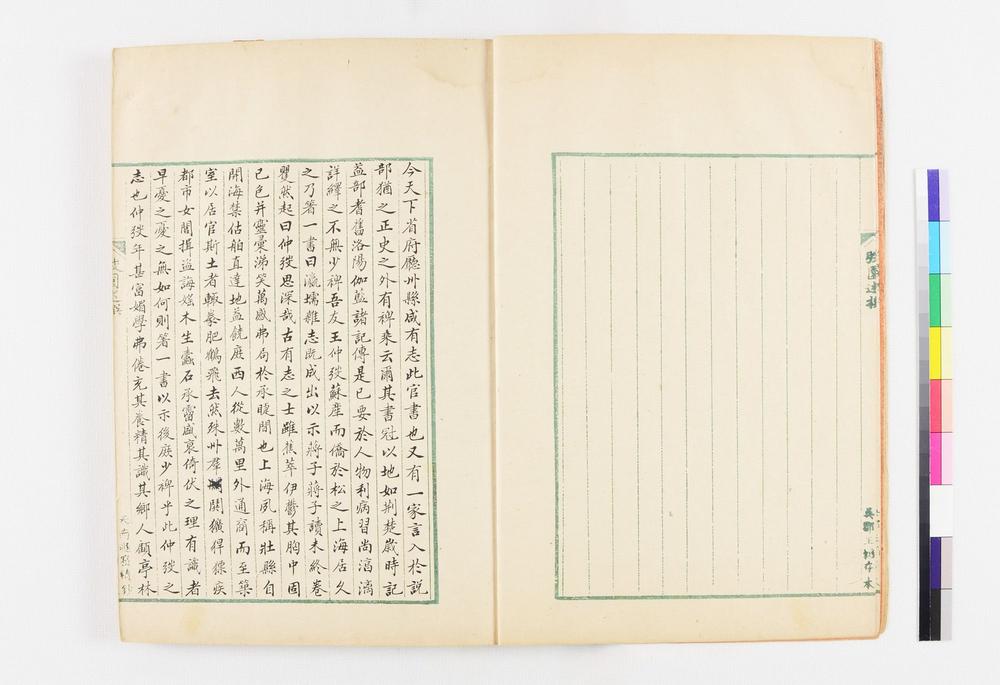 弢園述撰
吳郡王氏存本
今天下省府廳州縣咸有志此官書也又有一家言入於說
部猶之正史之外有裨乘云爾其書冠以地如荆楚歲時記
益部耆舊洛陽伽藍諸記傳是已要於人物利病習尚滴滴
詳繹之不無少裨吾友王仲弢蘇產而僑於松之上海居久
之乃箸一書曰瀛壖雜志既成出以示蔣子蔣子讀未終卷
矍然起曰仲弢思深哉古有志之士雖蕉萃伊鬱其胸中固
已色并靈彙涕笑萬感弗局於承睫間也上海夙稱壯縣自
開海禁估舶直達地益饒庶西人從數萬里外通商而至築
室以居官斯土者輒豢肥鶴飛去然殊州羣閧獷猂猤疾
都市女閭揖盜誨婬木生蠹石承霤盛衰倚伏之理有識者
早憂之憂之無如何則箸一書以示後庶少裨乎此仲弢之
志也仲弢年甚富媚學弗倦充其養精其識其鄉人顧亭林